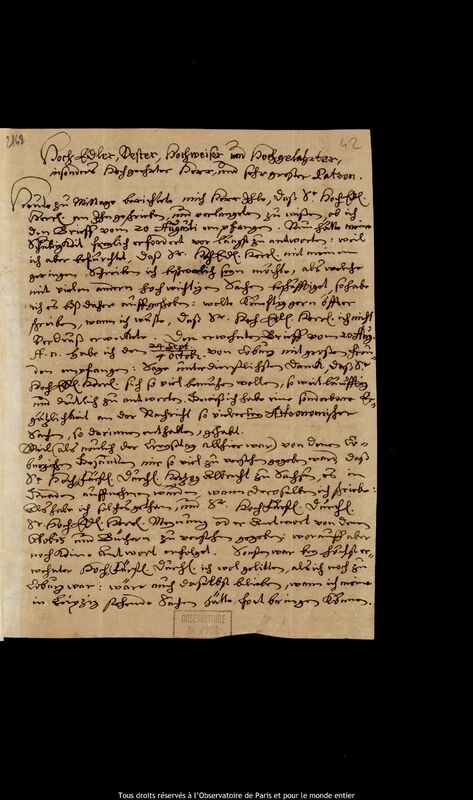 2168
42
Hoch Edler, Vester, Hochweiser und Hochgelahrter,
insonders Hochgeehrter Herr, und sehr grosser Patron.
Heute zu Mittage berichtete mich Herr Ihle, daß Sr HochEdl.
Herrl. an Ihn geschrieben, und verlangeten zu wißen, ob ich
den Brieff vom 20 Augusti empfangen. Nun hätte meine
Schuldigkeit freylich erfordert vor längst zu antworten: weil
ich aber befürchtet, daß Sr. HochEdl. Herrl. mit meinem
geringen Schreiben ich beschwerlich seyn möchte, als welche
mit vielen andern hochwichtigen Sachen beschäfftiget, so habe
ich es bis daher auffgehoben: wolte künfftig gern öffter
schreiben, wann ich wüste, daß Sr. Hoch-Edl. Herrl. ich nicht
Verdruß erweckete. Den erwehnten Brieff vom 20 Aug.
st. n. habe ich den 24 Sept. / 4 Octobr. von Coburg mit grossen freu
den empfangen: Sage unterdienstlichsten Danck, daß Sr
HochEdl. Herrl. sich so viel bemühen wollen, so weitläufftig
und deutlich zu antworten. Gewiß ich habe eine sonderbare Er
götzlichkeit an der Nachricht so vieler Astronomischer
Sachen, so darinnen enthalten, gehabt.
Weil (als neulich der allhier war) von dem Co
burgischen Gesandten mir so viel zu verstehen gegeben ward, daß
Sr Hochfürstl. Durchl. Herzog Albrecht zu Sachsen, es in
Gnaden auffnehmen würden, wann deroselben ich schriebe:
Als habe ich solches gethan, und Sr. Hochfürstl. Durchl.
Sr. Hoch-Edl. Herrl. Meinung oder Antwort von denen
Globis und Büchern zu verstehen gegeben: worauff aber
noch keine Antwort erfolget. Sonsten war bey höchst er-
wehnter Hochfürstl. Durchl. ich wol gelitten, als ich noch zu
Coburg war: wäre auch daselbst blieben, wann ich meine
in Leipzig stehende Sachen hätte fort bringen können.
OBSERVATOIRE
DE PARIS
Tous droits réservés à l'Observatoire de Paris et pour le monde entier